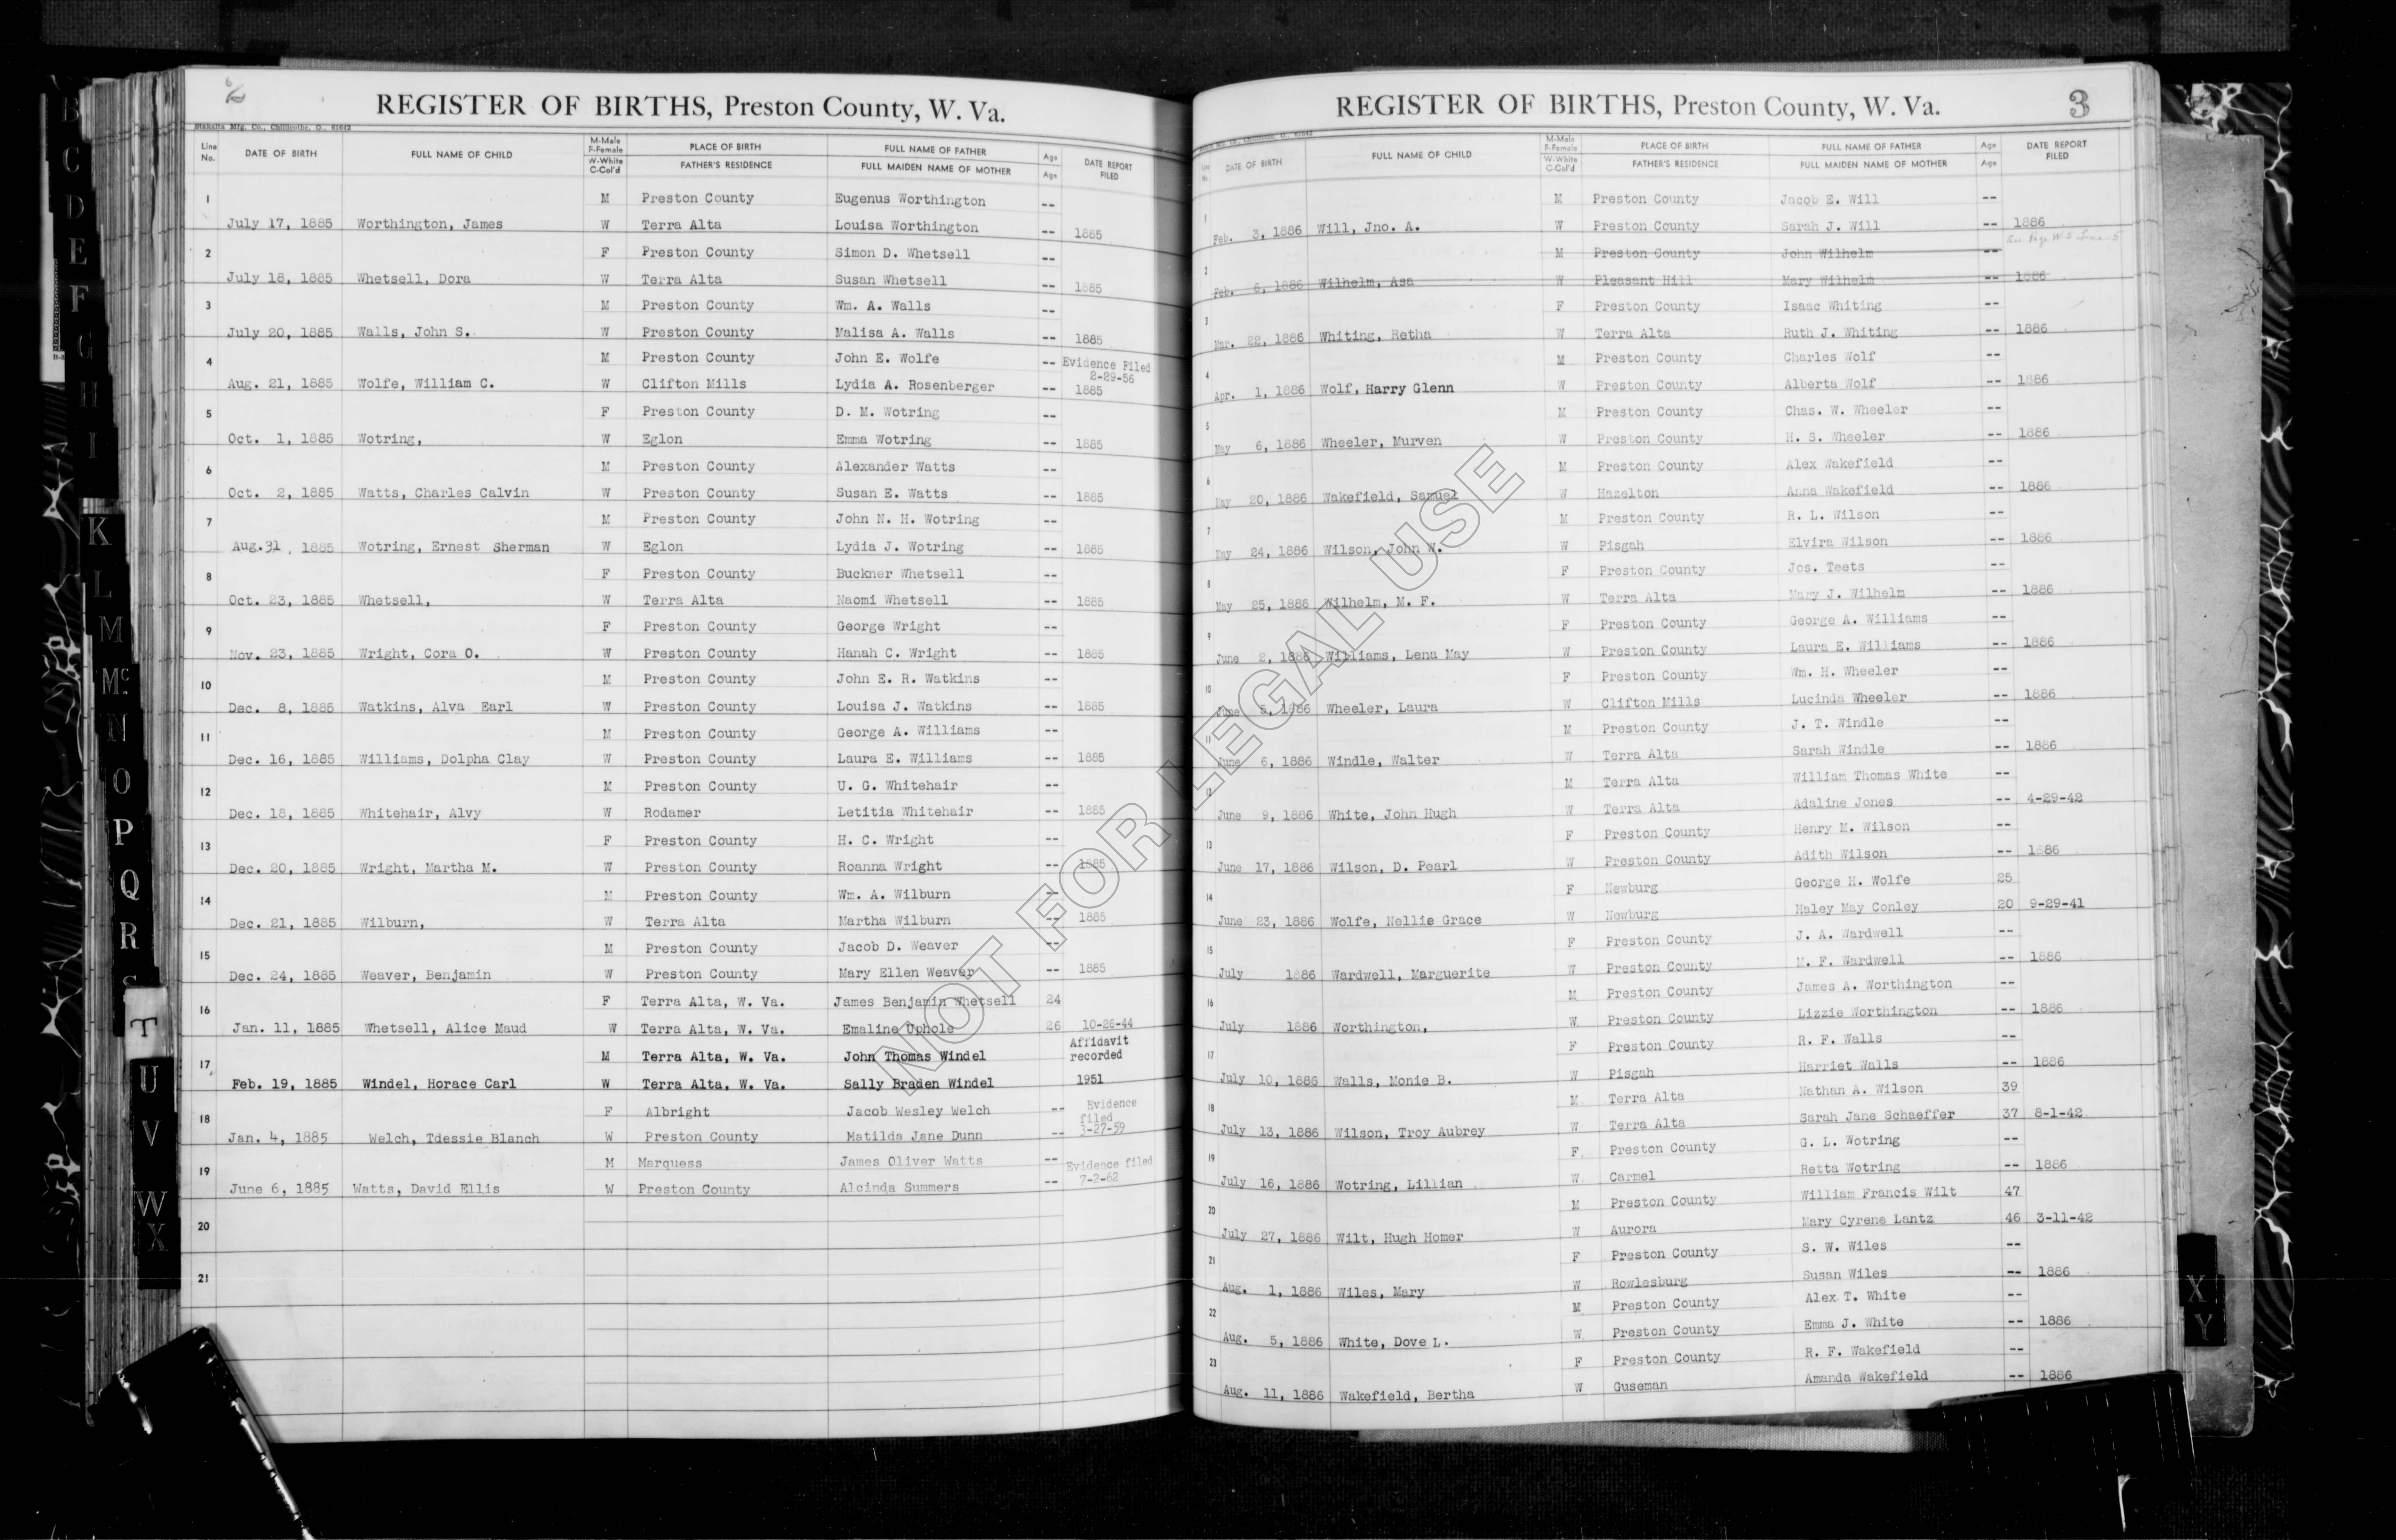 2
REGISTER OF BIRTHS, Preston County, W. Va.
Line No. DATE OF BIRTH FULL NAME OF CHILD M-Male F-Female W-White C-Col'd PLACE OF BIRTH FATHER'S RESIDENCE FULL NAME OF FATHER FULL MAIDEN NAME OF MOTHER Age Age DATE REPORT FILED
1 M Preston County Eugenus Worthington --
July 17, 1885 Worthington, James W Terra Alta Louisa Worthington -- 1885
2 F Preston County Simon D. Whetsell --
July 18, 1885 Whetsell, Dora W Terra Alta Susan Whetsell -- 1885
3 M Preston County Wm. A. Walls --
July 20, 1885 Walls, John S. W Preston County Malisa A. Walls -- 1885
4 M Preston County John E. Wolfe -- Evidence Filed 2-29-56
Aug. 21, 1885 Wolfe, William C. W Clifton Mills Lydia A. Rosenberger -- 1885
5 F Preston County D. M. Wotring --
Oct. 1, 1885 Wotring, W Eglon Emma Wotring -- 1885
6 M Preston County Alexander Watts --
Oct. 2, 1885 Watts, Charles Calvin W Preston County Susan E. Watts -- 1885
7 M Preston County John N. H. Wotring --
Aug.31, 1885 Wotring, Ernest Sherman W Eglon Lydia J. Wotring -- 1885
8 F Preston County Buckner Whetsell --
Oct. 23, 1885 Whetsell, W Terra Alta Naomi Whetsell -- 1885
9 F Preston County George Wright --
Nov. 23, 1885 Wright, Cora O. W Preston County Hanah C. Wright -- 1885
10 M Preston County John E. R. Watkins --
Dec. 8, 1885 Watkins, Alva Earl W Preston County Louisa J. Watkins -- 1885
11 M Preston County George A. Williams --
Dec. 16, 1885 Williams, Dolpha Clay W Preston County Laura E. Williams -- 1885
12 M Preston County U. G. Whitehair --
Dec. 18, 1885 Whitehair, Alvy W Rodamer Letitia Whitehair -- 1885
13 F Preston County H. C. Wright --
Dec. 20, 1885 Wright, Martha M. W Preston County Roanna Wright -- 1885
14 M Preston County Wm. A. Wilburn --
Dec. 21, 1885 Wilburn, W Terra Alta Martha Wilburn -- 1885
15 M Preston County Jacob D. Weaver --
Dec. 24, 1885 Weaver, Benjamin W Preston County Mary Ellen Weaver -- 1885
16 F Terra Alta, W. Va. James Benjamin Whetsell 24
Jan. 11, 1885 Whetsell, Alice Maud W Terra Alta, W. Va. Emaline Uphole 26 10-26-44
17 M Terra Alta, W. Va. John Thomas Windel Affidavit recorded
Feb. 19, 1885 Windel, Horace Carl W Terra Alta, W. Va. Sally Braden Windel 1951
18 F Albright Jacob Wesley Welch -- Evidence filed
Jan. 4, 1885 Welch, Tdessie Blanch W Preston County Matilda Jane Dunn -- 3-27-59
19 M Marquess James Oliver Watts -- Evidence filed
June 6, 1885 Watts, David Ellis W Preston County Alcinda Summers -- 7-2-62
20
21
REGISTER OF BIRTHS, Preston County, W. Va. 3
Line No. DATE OF BIRTH FULL NAME OF CHILD M-Male F-Female W-White C-Col'd PLACE OF BIRTH FATHER'S RESIDENCE FULL NAME OF FATHER FULL MAIDEN NAME OF MOTHER Age Age DATE REPORT FILED
1 M Preston County Jacob E. Will --
Feb. 3, 1886 Will, Jno. A. W Preston County Sarah J. Will -- 1886
2 M Preston County John Wilhelm --
Feb. 6, 1886 Wilhelm, Asa W Pleasant Hill Mary Wilhelm -- 1886
3 F Preston County Isaac Whiting --
Mar. 22, 1886 Whiting, Retha W Terra Alta Ruth J. Whiting -- 1886
4 M Preston County Charles Wolf --
Apr. 1, 1886 Wolf, Harry Glenn W Preston County Alberta Wolf -- 1886
5 M Preston County Chas. W. Wheeler --
May 6, 1886 Wheeler, Murven W Preston County H. S. Wheeler -- 1886
6 M Preston County Alex Wakefield --
May 20, 1886 Wakefield, Samuel W Hazelton Anna Wakefield -- 1886
7 M Preston County R. L. Wilson --
May 24, 1886 Wilson, John W. W Pisgah Elvira Wilson -- 1886
8 F Preston County Jos. Teets --
May 25, 1886 Wilhelm, M. F. W Terra Alta Mary J. Wilhelm -- 1886
9 F Preston County George A. Williams --
June 2, 1886 Williams, Lena May W Preston County Laura E. Williams -- 1886
10 F Preston County Wm. H. Wheeler --
June 5, 1886 Wheeler, Laura W Clifton Mills Lucinda Wheeler -- 1886
11 M Preston County J. T. Windle --
June 6, 1886 Windle, Walter W Terra Alta Sarah Windle -- 1886
12 M Terra Alta William Thomas White --
June 9, 1886 White, John Hugh W Terra Alta Adaline Jones -- 4-29-42
13 F Preston County Henry M. Wilson --
June 17, 1886 Wilson, D. Pearl W Preston County Adith Wilson -- 1886
14 F Newburg George H. Wolfe 25
June 23, 1886 Wolfe, Nellie Grace W Newburg Haley May Conley 20 9-29-41
15 F Preston County J. A. Wardwell --
July 1886 Wardwell, Marguerite W Preston County M. F. Wardwell -- 1886
16 M Preston County James A. Worthington --
July 1886 Worthington, W Preston County Lizzie Worthington -- 1886
17 F Preston County R. F. Walls --
July 10, 1886 Walls, Monie B. W Pisgah Harriet Walls -- 1886
18 M Terra Alta Nathan A. Wilson 39
July 13, 1886 Wilson, Troy Aubrey W Terra Alta Sarah Jane Schaeffer 37 8-1-42
19 F Preston County G. L. Wotring --
July 16, 1886 Wotring, Lillian W Carmel Retta Wotring -- 1886
20 M Preston County William Francis Wilt 47
July 27, 1886 Wilt, Hugh Homer W Aurora Mary Cyrene Lantz 46 3-11-42
21 F Preston County S. W. Wiles --
Aug. 1, 1886 Wiles, Mary W Rowlesburg Susan Wiles -- 1886
22 M Preston County Alex T. White --
Aug. 5, 1886 White, Dove L. W Preston County Emma J. White -- 1886
23 F Preston County R. F. Wakefield --
Aug. 11, 1886 Wakefield, Bertha W Guseman Amanda Wakefield -- 1886
NOT FOR LEGAL USE
B
C
D
E
F
G
H
I
K
L
M
Mc
N
O
P
Q
R
S
T
U
V
W
X
X
Y